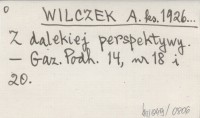 WILCZEK A. ks. 1926...
Z dalekiej perspektywy.
– Gaz. Podh. 14, nr 18 i
20.